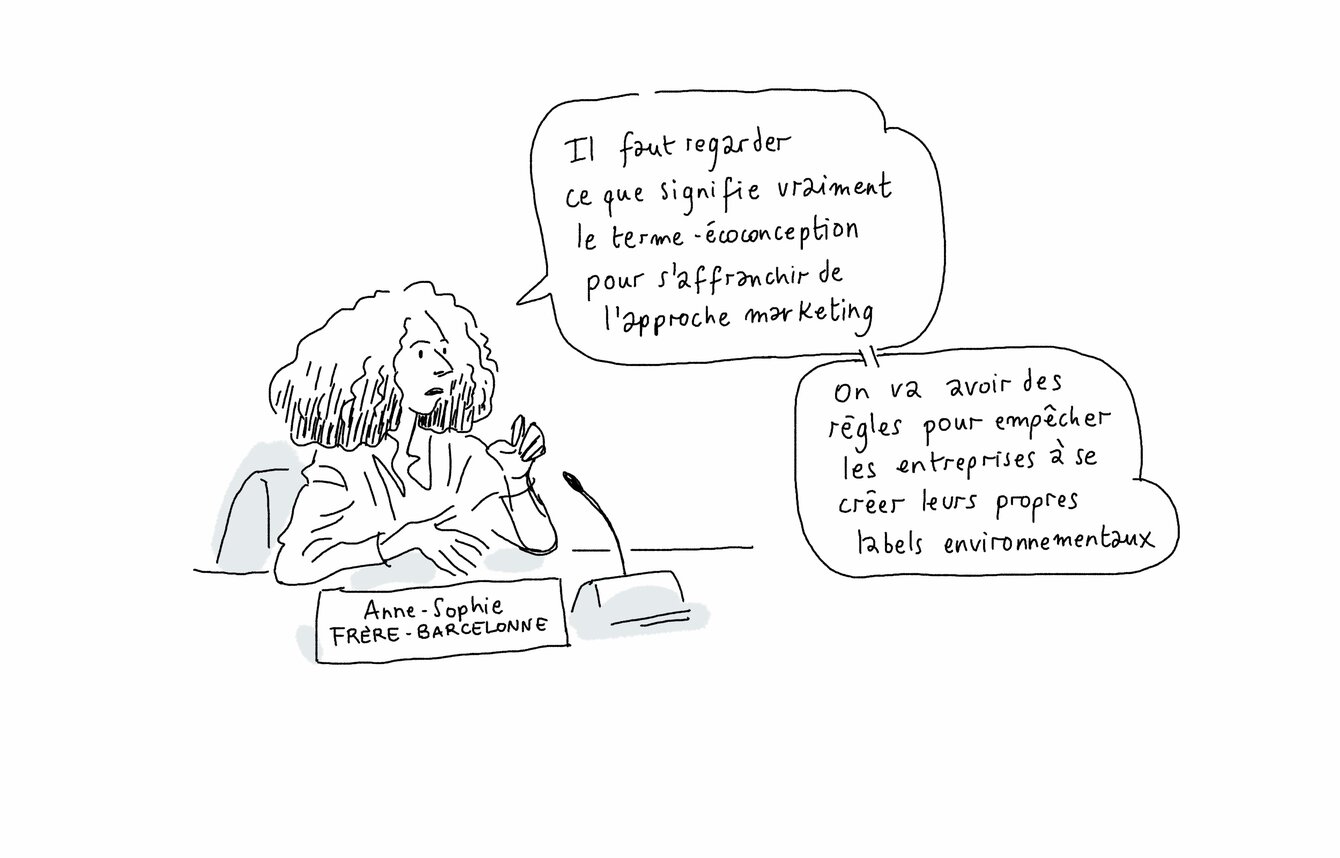 Il faut regarder
ce que signifie vraiment
le terme - écoconception
pour s'affranchir de
l'approche marketing
On va avoir des
règles pour empêcher
les entreprises à se
créer leurs propres
labels environnementaux
Anne-Sophie
FRÈRE-BARCELONNE